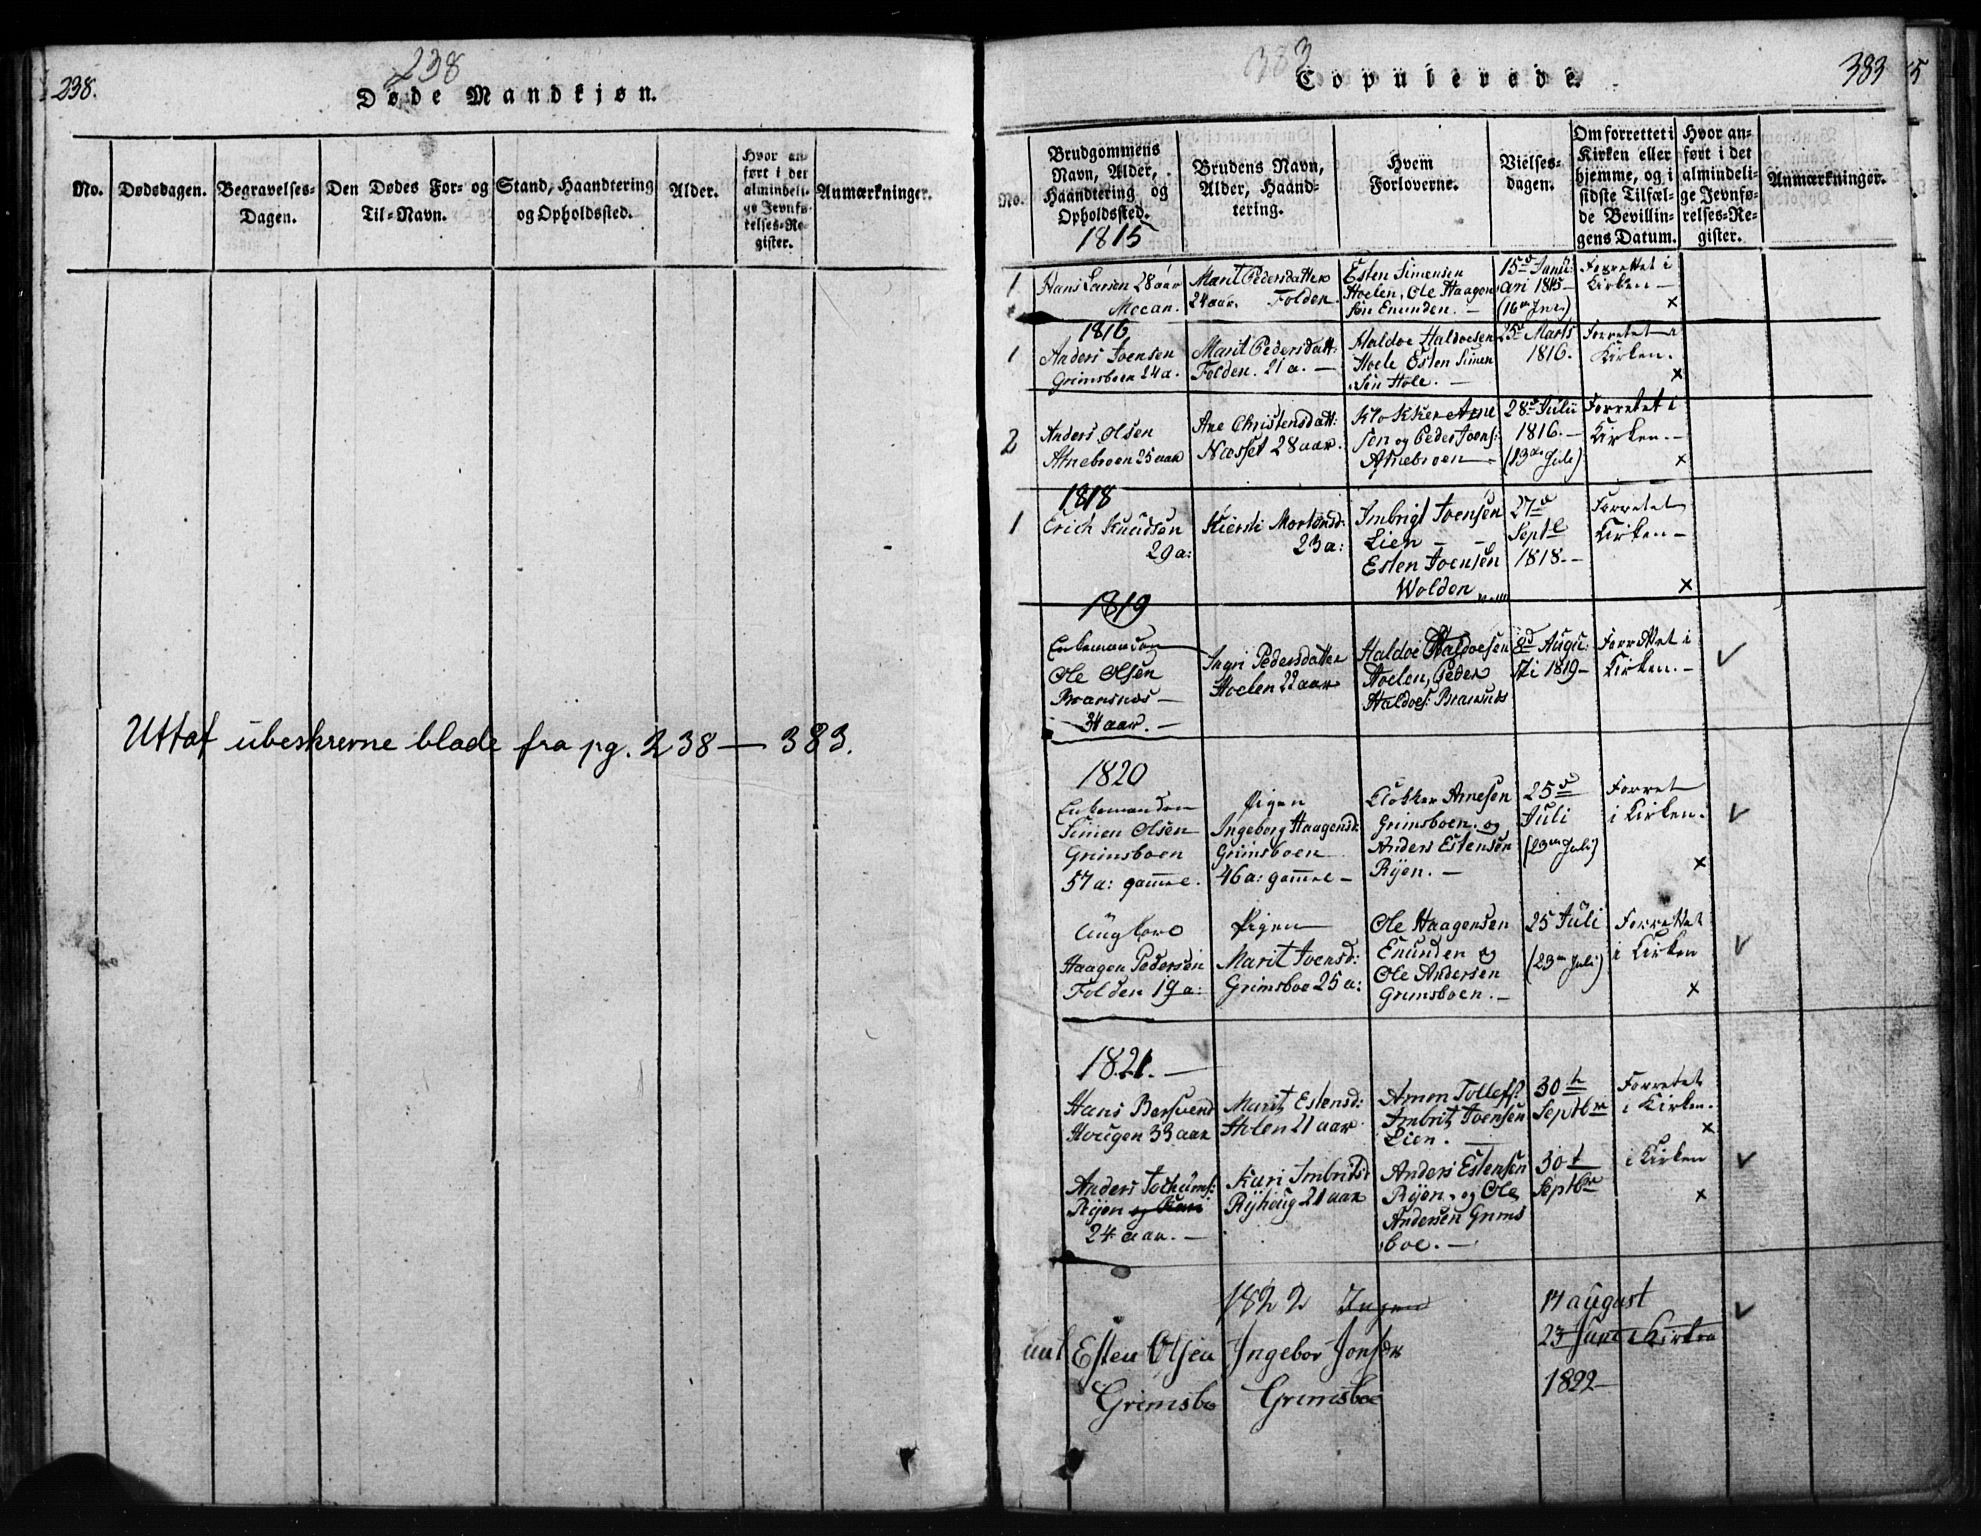 238.
238
Døde Mandkjøn.
No.
Dødsdagen.
Begravelses-
Dagen.
Den Dødes For- og
Til-Navn.
Stand, Haandtering
og Opholdssted.
Alder.
Hvor an-
ført i det
almindeli-
ge Jevnfø-
relses-Re-
gister.
Anmærkninger.
Uttat ubeskrevne blade fra pg. 238 — 383.
383
Copulerede.
383
No.
Brudgommens
Navn, Alder,
Haandtering og
Opholdssted.
Brudens Navn,
Alder, Haand-
tering.
Hvem
Forloverne.
Vielses-
dagen.
Om forrettet i
Kirken eller
hjemme, og i
sidste Tilfæl-
de Bevillin-
gens Datum.
Hvor an-
ført i det
almindeli-
ge Jevnfø-
relses-Re-
gister.
Anmærkninger.
1815
1
Hans Larsen 28 aar
Moean.
Marit Pedersdatter
24 aar. Folden.
Esten Simensen
Hoelen, Ole Haagen
søn Enunden. —
15d Janu:
ari 1815—
Forrettet i
Kirken —
x
1816
1
Anders Joensen
Grimsboen 24 a.
Marit Pedersdatt:
Folden. 21 a. —
Haldoe Haldoesen
Hoele Esten Simen
søn Hole. —
25d Marts
1816.
Forretet i
Kirken.
x
2
Anders Olsen
Atneboen 25 aar
Ane Christensdatt:
Næsset 28 aar.
Klokker Arne
søn og Peder Joens:
Atneboen —
28d Julii
1816. —
(13de Jule)
Forretet i
Kirken. —
x
1818
1
Erich Knudsøn
29 a:
Kiersti Mortensd:
23 a:
Imbrigt Joensen
Lien — —
Esten Joensen
Wolden
27d
Septb
1818. —
Forretet
Kirken —
x
1819
Enkemanden
Ole Olsen
34 aar. —
Ingri Pedersdatter
Hoelen 22 aar
Haldoe Haldoesen
Hoelen, Peder
Haldoes:
8d Augu:
sti 1819 —
Forrettet i
Kirken. —
✓
1820
Enkemanden
Simen Olsen
Grimsboen
57 a: gam̄el.
Pigen
Ingeborg Haagensd:
Grimsboen
46 a: gam̄el —
Clokker Arnesen
Grimsboen. og
Anders Estensen
Ryen. —
25d
Juli
(23de Juli)
Forret
i Kirken.
✓
x
Ungkarl
Haagen Pedersen
Folden 19 a:
Pigen
Marit Joensd:
Grimsboe 25 a:
Ole Haagensen
Enunden og
Ole Andersen
Grimsboen. —
25 Juli
(23de Juli)
Forrettet
i Kirken
✓
x
1821. —
Hans Bersvend
Hougen 33 aar
Marit Estensd:
Holen 21 aar
Amon Tollefs:
Imbrit Joensen
Lien. —
30t
Septbr
Forretet
i Kirken.
x
Anders Jochums:
Ryen og Kari
24 aar. —
Kari Imbritsd:
Ryhoug 21 aar
Anders Estensen
Ryen, og Ole
Andersen Grims
boe. —
30t
Septbr
i Kirken
✓
x
1822 Ingen
Esten Olsen
Grimsbo
Ingebor Jonsdr
Grimsboe
14 august
23 Juni i Kirken
1822—
✓